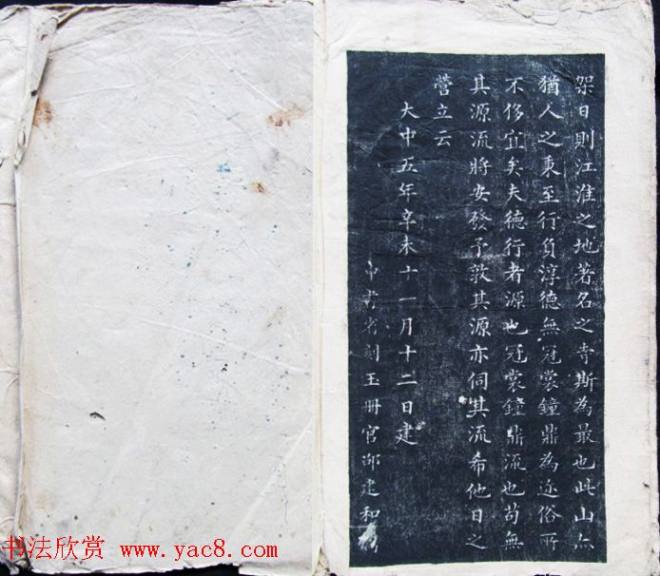 架日則江淮之地著名之寺斯為最也此山亦
猶人之秉至行負淳德無冠裳鐘鼎為迩俗所
不侈宜矣夫德行者源也冠裳鐘鼎流也苟無
其源流將安發予敦其源亦伺其流希他日之
營立云
大中五年辛未十一月十二日建
中書省刻玉冊官邵建和
书法欣赏 www.yac8.com